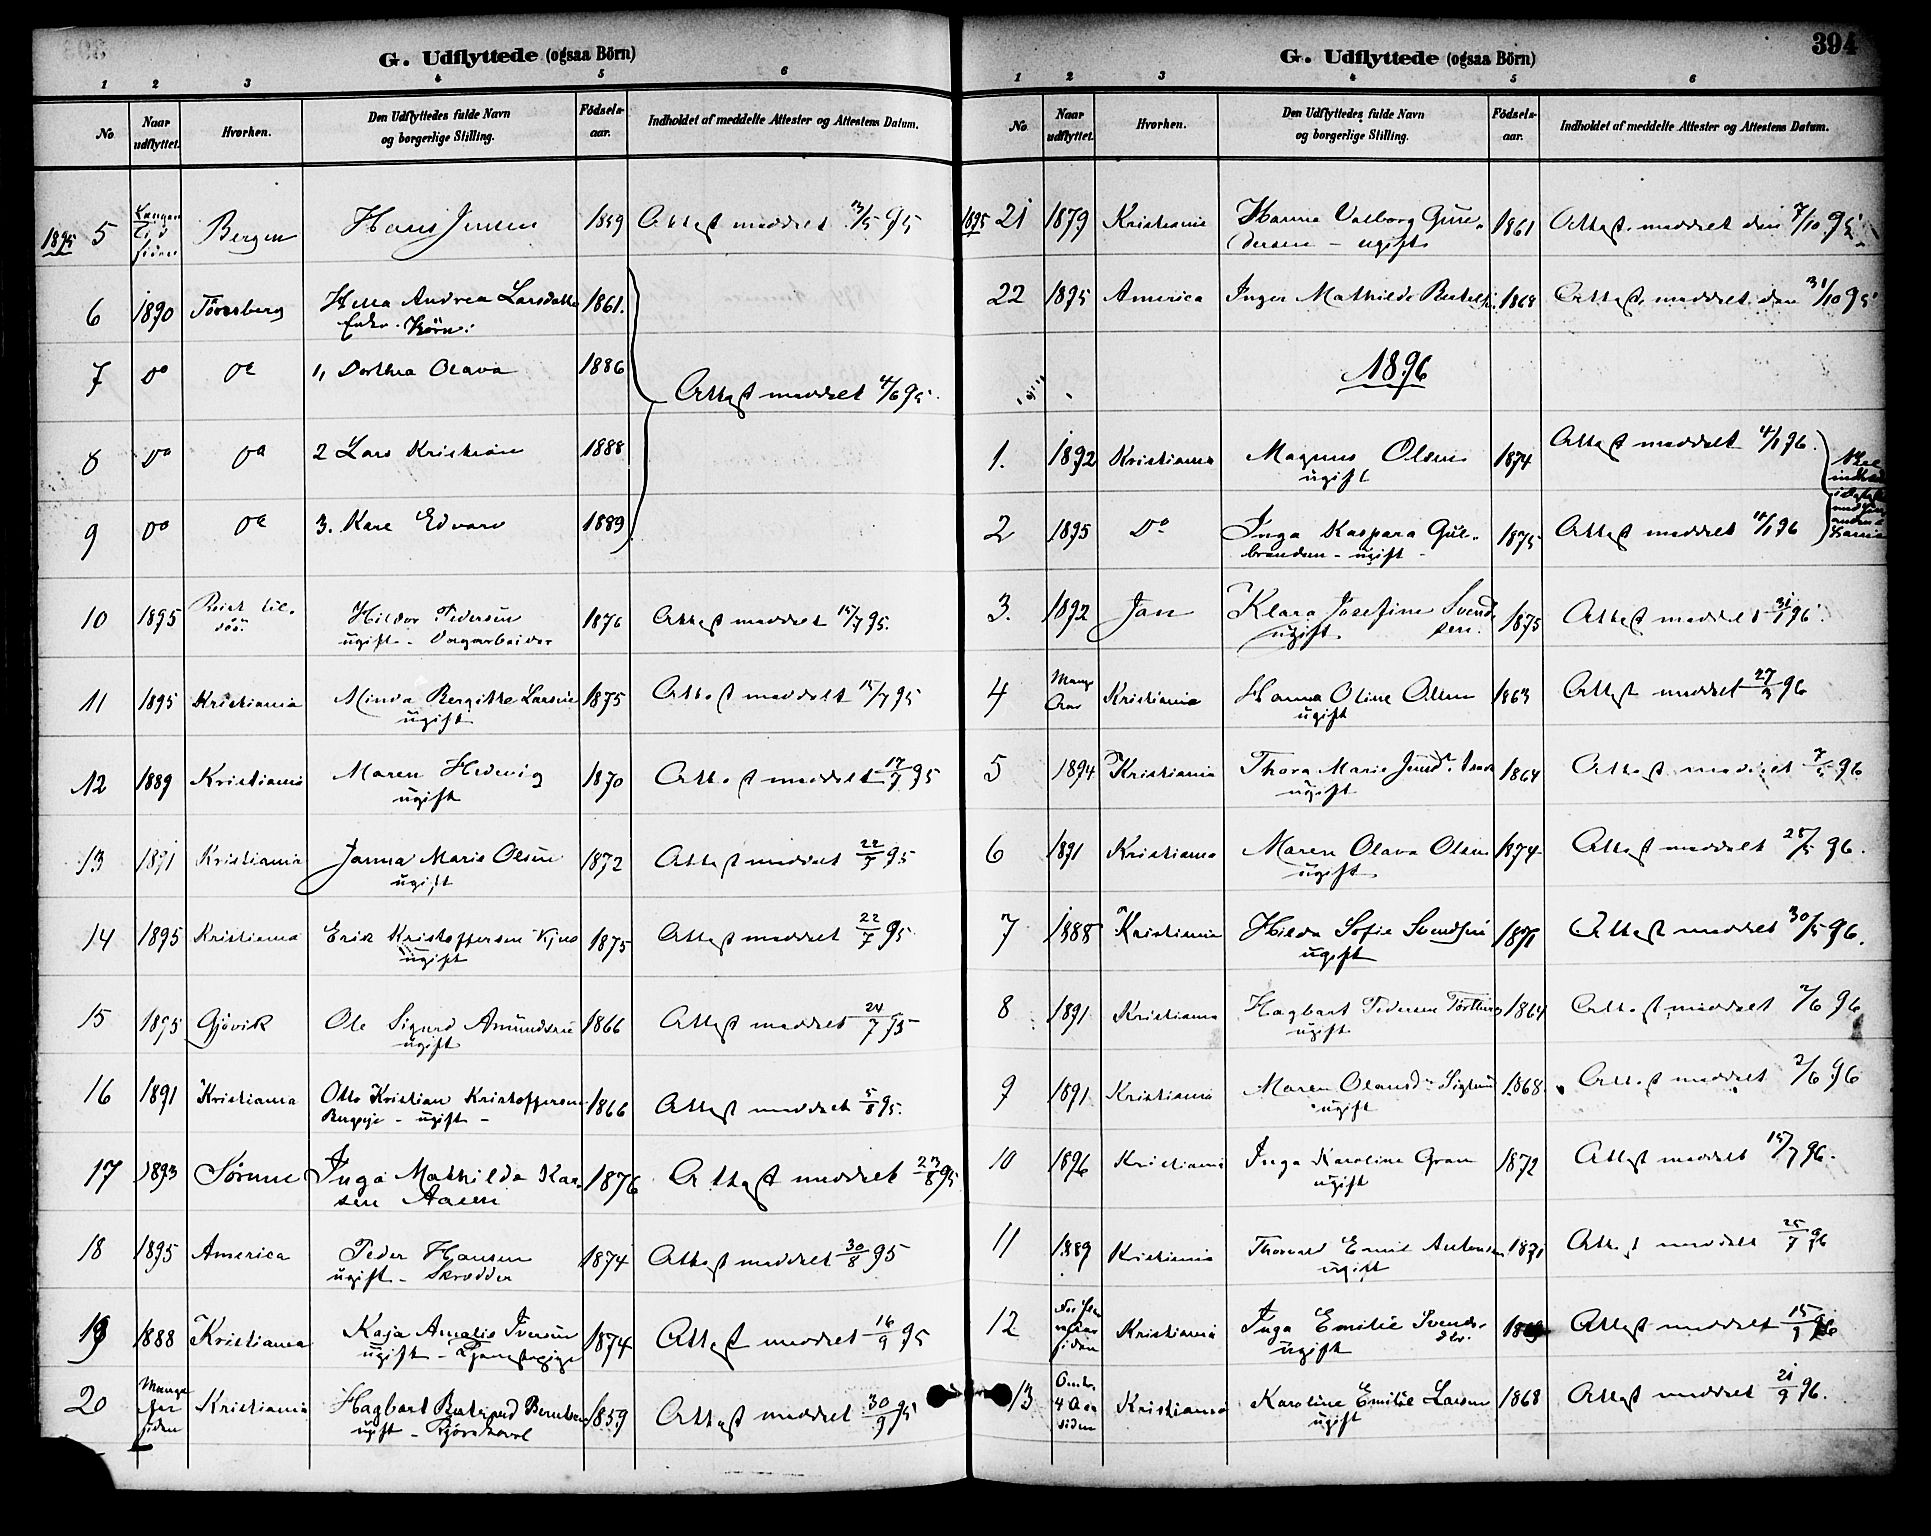 G. Udflyttede (ogsaa Börn)
1 2 3 4 5 6
No Naar udflyttet. Hvorhen. Den Udflyttedes fulde Navn og borgerlige Stilling. Födsels-aar. Indholdet af meddelte Attester og Attestens Datum.
1895 5 Længere Tid siden Bergen Hans Jensen 1859 Attest meddelt 13/5 95
6 1890 Tönsberg Andrea Larsdatter 1861.
Enke. Börn:
7 Do Do 1, Dorthea Olava 1886 Attest meddelt 4/6 95.
8 Do Do 2 Lars Kristian 1888
9 Do Do 3. Kare Edvard 1889
10 1895 Reist til- Hildor Pedersen 1876 Attest meddelt 15/7 95.
sös. ugift - Dagarbeider
11 1895 Kristiania Minda Bergitte Larsen 1875 Attest meddelt 15/7 95
ugift
12 1889 Kristiania Maren Hedevig 1870 Attest meddelt 17/7 95
ugift
13 1871 Kristiania Janna Marie Olsen 1872 Attest meddelt 22/7 95
ugift
14 1895 Kristiania Erik Kristoffersen 1875 Attest meddelt 22/7 95
ugift
15 1895 Gjövik Ole Sigurd Amundsen 1866 Attest meddelt 24/7 95
ugift
16 1891 Kristiania Otto Kristian Kristoffersen 1866 Attest meddelt 5/8 95.
- ugift -
17 1893 Sörum Inga Mathilde Kar- 1876 Attest meddelt 23/8 95
sen Aasen
18 1895 America Peder Hansen 1874 Attest meddelt 30/8 95
ugift - Skrædder
19 1888 Kristiania Kaja Amalie Iversen 1874 Attest meddelt 16/9 95
ugift - Tjenestepige
20 Mange Aar siden Kristiania Hagbart Berntsen 1859 Attest meddelt 30/9 95
ugift -
394
G. Udflyttede (ogsaa Börn)
1 2 3 4 5 6
No Naar udflyttet. Hvorhen. Den Udflyttedes fulde Navn og borgerlige Stilling. Födsels-aar. Indholdet af meddelte Attester og Attestens Datum.
1895 21 1879 Kristiania Hanna Valborg Gun- 1861 Attest meddelt den 7/10 95
dersen - ugift
22 1895 America Inger Mathilde 1864 Attest meddelt den 31/10 95
1896
1. 1892 Kristiania Magnus Olsen 1874 Attest meddelt 4/1 96.
ugift
2 1895 Do Inga Kaspara Gul- 1875 Attest meddelt 4/1 96
brandsen - ugift -
3. 1892 Jan Klara Josefine Svend- 1875 Attest meddelt 31/1 96.
ugift. sen.
4 Mange Aar Kristiania Hanna Oline Olsen 1863 Attest meddelt 27/3 96
ugift
5 1894 Kristiania Thora Marie 1864 Attest meddelt 7/5 96
ugift
6 1891 Kristiania Maren Olava Olsen 1874 Attest meddelt 28/5 96.
ugift.
7 1888 Kristiania Hilda Sofie Svendsen 1871 Attest meddelt 30/5 96.
ugift
8 1891 Kristiania Hagbart Pedersen 1864 Attest meddelt 2/6 96
ugift
9 1891 Kristiania Maren Olausdr 1868. Attest meddelt 2/6 96
ugift
10 1896 Kristiania Inga Karoline Gran 1872 Attest meddelt 15/7 96.
ugift
11 1889 Kristiania Thorvald Emil Antonsen 1871 Attest meddelt 25/7 96
ugift
12 siden Kristiania Inga Emilie Svends- Attest meddelt 15/9 96
dtr. ugift
13 Omtr. 4 Aar siden Kristiania Karoline Emilie Larsen 1868 Attest meddelt 21/9 96.
ugift